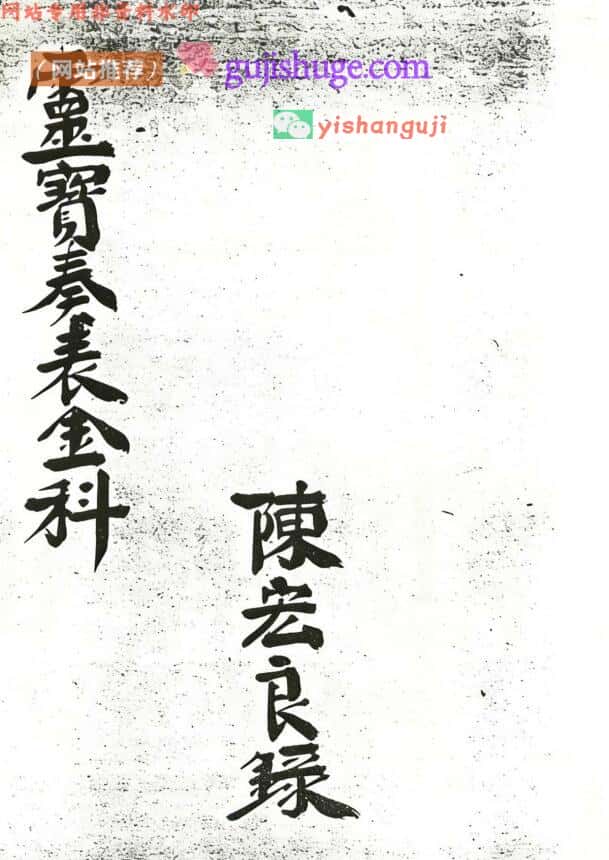 网站专用接资料水印
（网站推荐）
gujishuge.com
yishanguji
靈寶奏表金科
陳宏良録